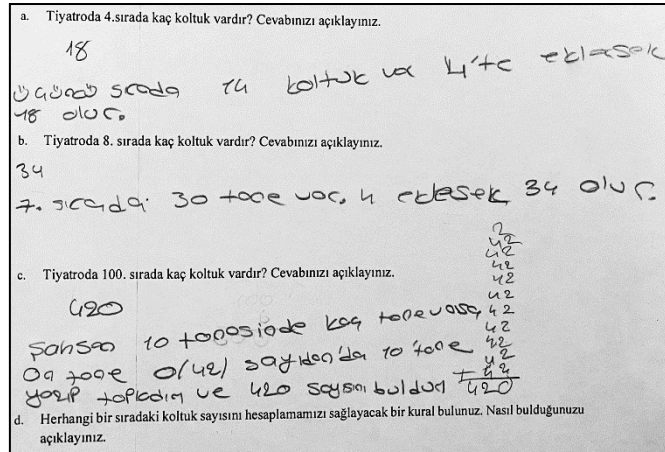 a. Tiyatroda 4.sırada kaç koltuk vardır? Cevabınızı açıklayınız.
18
üçüncü sırada 14 koltuk var 4'te eklesek
18 olur.
b. Tiyatroda 8. sırada kaç koltuk vardır? Cevabınızı açıklayınız.
34
7. sırada 30 tane var. 4 eklesek 34 olur.
c. Tiyatroda 100. sırada kaç koltuk vardır? Cevabınızı açıklayınız.
420
10 tanesinde kaç tane varsa
On tane o(42) sayıdan'da 10 tane
yazıp topladım ve 420 sayısını buldum
2
42
42
42
42
42
42
42
42
42
+ 42
420
d. Herhangi bir sıradaki koltuk sayısını hesaplamamızı sağlayacak bir kural bulunuz. Nasıl bulduğunuzu
açıklayınız.